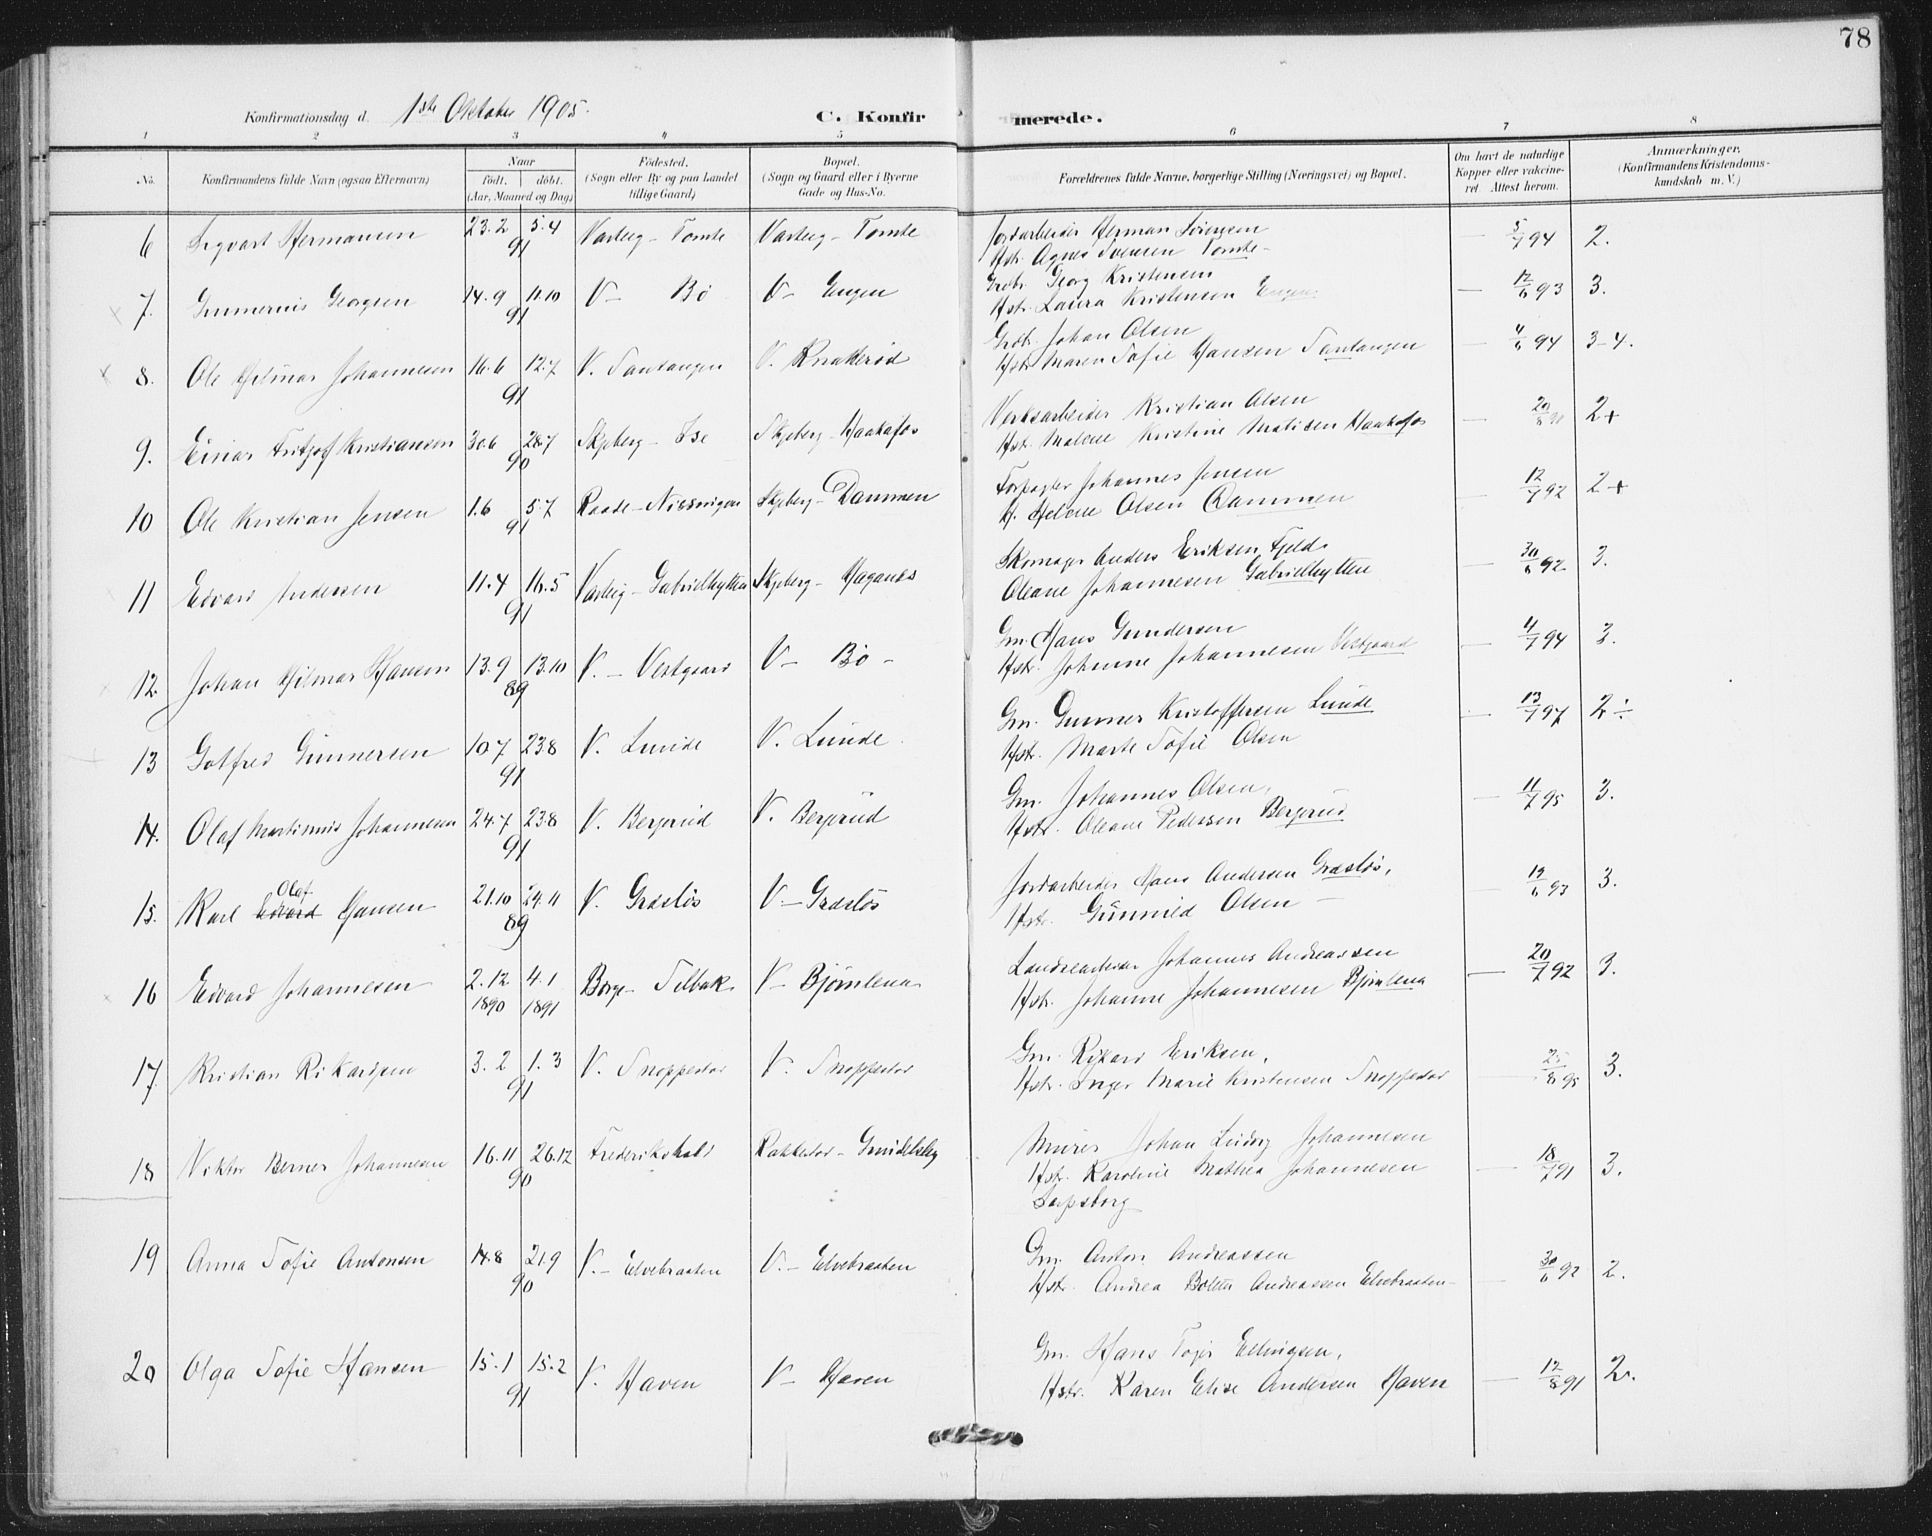 78
Konfirmationsdag d. 1ste Oktober 1905.
C. Konfirmerede.
1 2 3 4 5 6 7 8
No. Konfirmandens fulde Navn (ogsaa Efternavn) Naar født, døbt. (Aar, Maaned og Dag) Födested. (Sogn eller By og paa Landet tillige Gaard) Bopæl. (Sogn og Gaard eller i Byerne Gade og Hus-No. Forældrenes fulde Navne, borgerlige Stilling (Næringsvei) og Bopæl. Om havt de naturlige Kopper eller vakcineret. Attest herom. Anmærkninger. (Konfirmandens Kristendomskundskab m. V.)
6 Sigvart Hermansen 23.2 5.4 91 Varteig - Tomte Varteig - Tomte Jordarbeider Herman Sörensen — 5/7 94 2.
Hstr. Agnes Svensen Tomte -
7. Gunnerius Georgsen 14.9 11.10 91 V - Bö V - Engen Grdbr. Georg Kristensen — 12/6 93 3.
Hstr. Laura Kristensen Engen
8. Ole Hilmar Johannesen 16.6 12.7 91 V. Tantangen V. Knatteröd Grdb. Johan Olsen — 4/6 94 3-4.
Hstr. Maren Sofie Hansen Tantangen
9. Einar Fritjof Kristiansen 30.6 28.7 90 Skjeberg - Ise Skjeberg - Haakafos Verksarbeider Kristian Olsen — 20/8 91 2+
Hstr. Malene Kristine Matisen Haakafos
10 Ole Kristian Jensen 1.6 5.7 91 Raade - Skjeberg - Dammen Forpagter Johannes Jensen — 12/7 92 2+
H. Helene Olsen Dammen
11 Edvard Andersen 11.4 16.5 91 Varteig - Gabrielhytten Skjeberg - Haganes Skomager Anders Eriksen Fjeld — 30/6 92 3.
Oleane Johannesen Gabrielhytten
12. Johan Hilmar Hansen 13.9 13.10 89 V. - Vestgaard V - Bö - Gm. Hans Gundersen — 4/7 94 3.
Hstr. Johanne Johannesen Vestgaard
13 Gotfred Gunnersen 10.7 23.8 91 V. Lunde V. Lunde. Gm. Gunner Kristoffersen Lunde — 13/7 97 2 ÷
Hstr. Marte Sofie Olsen
14. Olaf Martinius Johannesen 24.7 23.8 91 V. Bergerud V. Bergerud Gm. Johannes Olsen, — 11/7 95 3.
Hstr. Oleane Pedersen Bergerud
15. Karl Edvard Olaf Hansen 21.10 24.11 89 V. Græslös V - Græslös Jordarbeider Hans Andersen Græslös, — 19/6 93 3.
Hstr. Gunnild Olsen —
16 Edvard Johannesen 2.12 1890 4.1 1891 Borge - Tilbak V - Björnlena Johannes Andreassen — 20/7 92 3.
Hstr. Johanne Johannesen Björnlena
17. Kristian Rikardsen 3.2 1.3 91 V. Snoppestad V. Snoppestad Gm. Rikard Eriksen, — 25/8 95 3.
Hstr. Inger Marie Kristensen Snoppestad
18 Viktor Berner Johannesen 16.11 26.12 90 Frederikshald Rakkestad - Murer Johan Ludvig Johannesen — 18/7 91 3.
Hstr. Karoline Mathea Johannesen
Sarpsborg
19 Anna Sofie Antonsen 14.8 21.9 90 V. - Elvebraaten V. - Elvebraaten Gm. Anton Andreassen — 30/6 92 2.
Hstr. Andrea Bolette Andreassen Elvebraaten -
20 Olga Sofie Hansen 15.1 15.2 91 V. Haven V - Haven Gm. Hans Ellingsen, — 12/8 91 2.
Hstr. Karen Elise Andersen Haven